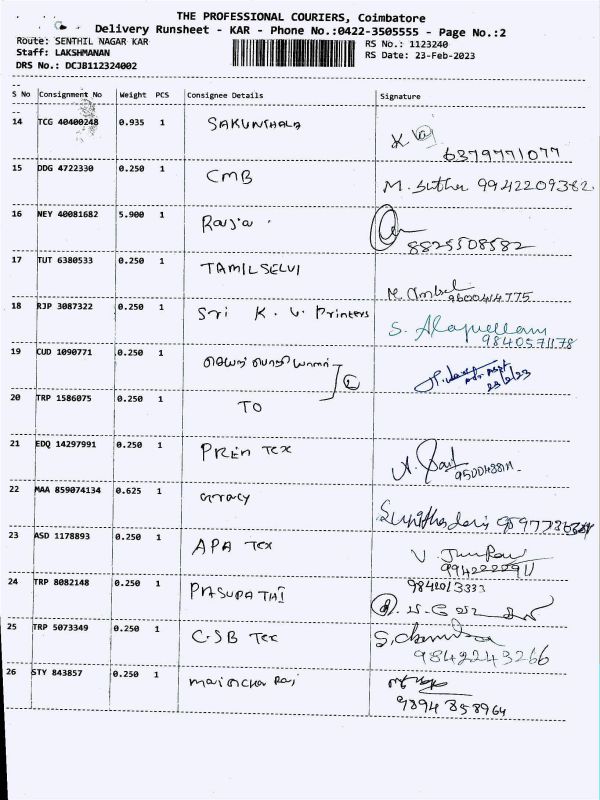 THE PROFESSIONAL COURIERS, Coimbatore
Delivery Runsheet - KAR - Phone No.:0422-3505555 - Page No.:2
Route: SENTHIL NAGAR KAR RS No.: 1123240
Staff: LAKSHMANAN RS Date: 23-Feb-2023
DRS No.: DCJB112324002
S No Consignment No Weight PCS Consignee Details Signature
14 TCG 40400248 0.935 1 SAKUNTHALA
6379771077
15 DDG 4722330 0.250 1 CMB M. Sutha 9942209382
16 NEY 40081682 5.900 1
8825508582
17 TUT 6380533 0.250 1 TAMILSELVI
9600414775
18 RJP 3087322 0.250 1 Sri K. V. Printers
9840571178
19 CUD 1090771 0.250 1
23/2/23
20 TRP 1586075 0.250 1 TO
21 EDQ 14297991 0.250 1 PREM TEX
22 MAA 859074134 0.625 1
23 ASD 1178893 0.250 1 APA TEX
24 TRP 8082148 0.250 1 PASUPATHI 9842013333
25 TRP 5073349 0.250 1 C-SB TEX
9842243266
26 STY 843857 0.250 1
9894858964